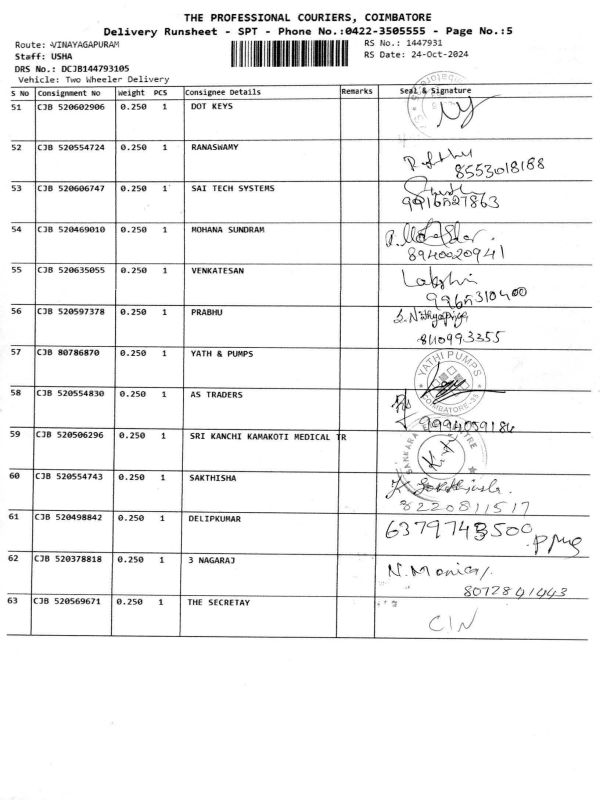 THE PROFESSIONAL COURIERS, COIMBATORE
Delivery Runsheet - SPT - Phone No.:0422-3505555 - Page No.:5
Route: VINAYAGAPURAM RS No.: 1447931
Staff: USHA RS Date: 24-Oct-2024
DRS No.: DCJB144793105
Vehicle: Two Wheeler Delivery
S No Consignment No Weight PCS Consignee Details Remarks Seal & Signature
51 CJB 520602906 0.250 1 DOT KEYS
52 CJB 520554724 0.250 1 RANASWAMY
8553018188
53 CJB 520606747 0.250 1 SAI TECH SYSTEMS
54 CJB 520469010 0.250 1 MOHANA SUNDRAM
8940020941
55 CJB 520635055 0.250 1 VENKATESAN
Lakshmi
56 CJB 520597378 0.250 1 PRABHU
8110993355
57 CJB 80786870 0.250 1 YATH & PUMPS
YATHI PUMPS
COIMBATORE-35
58 CJB 520554830 0.250 1 AS TRADERS
9994059184
59 CJB 520506296 0.250 1 SRI KANCHI KAMAKOTI MEDICAL TR
SANKARA
60 CJB 520554743 0.250 1 SAKTHISHA
8220811517
61 CJB 520498842 0.250 1 DELIPKUMAR
6379743500
62 CJB 520378818 0.250 1 3 NAGARAJ
N. Monica
8072841443
63 CJB 520569671 0.250 1 THE SECRETAY
CIN